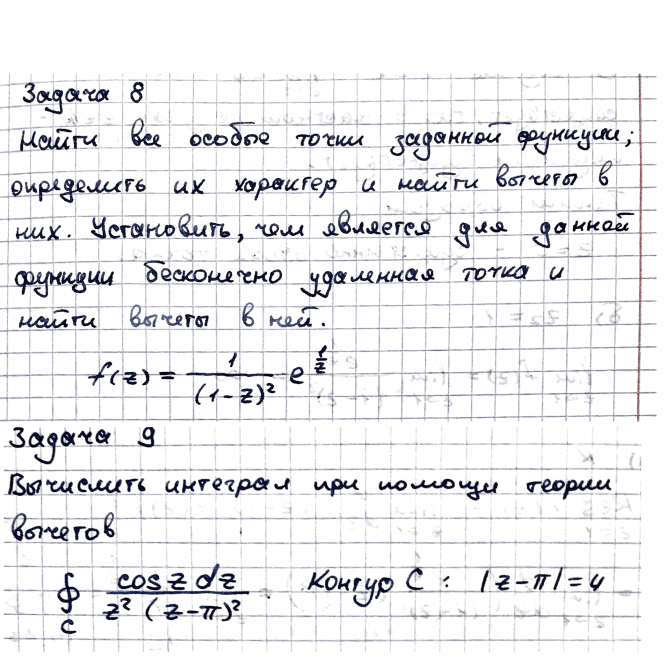 Задача 8
Найти все особые точки заданной функции;
определить их характер и найти вычеты в
них. Установить, чем является для данной
функции бесконечно удаленная точка и
найти вычеты в ней.
f(z) = 1/(1-z)² e^(1/z)
Задача 9
Вычислить интеграл при помощи теории
вычетов
∮_C cos z dz / z² (z-π)². Контур C: |z-π|=4